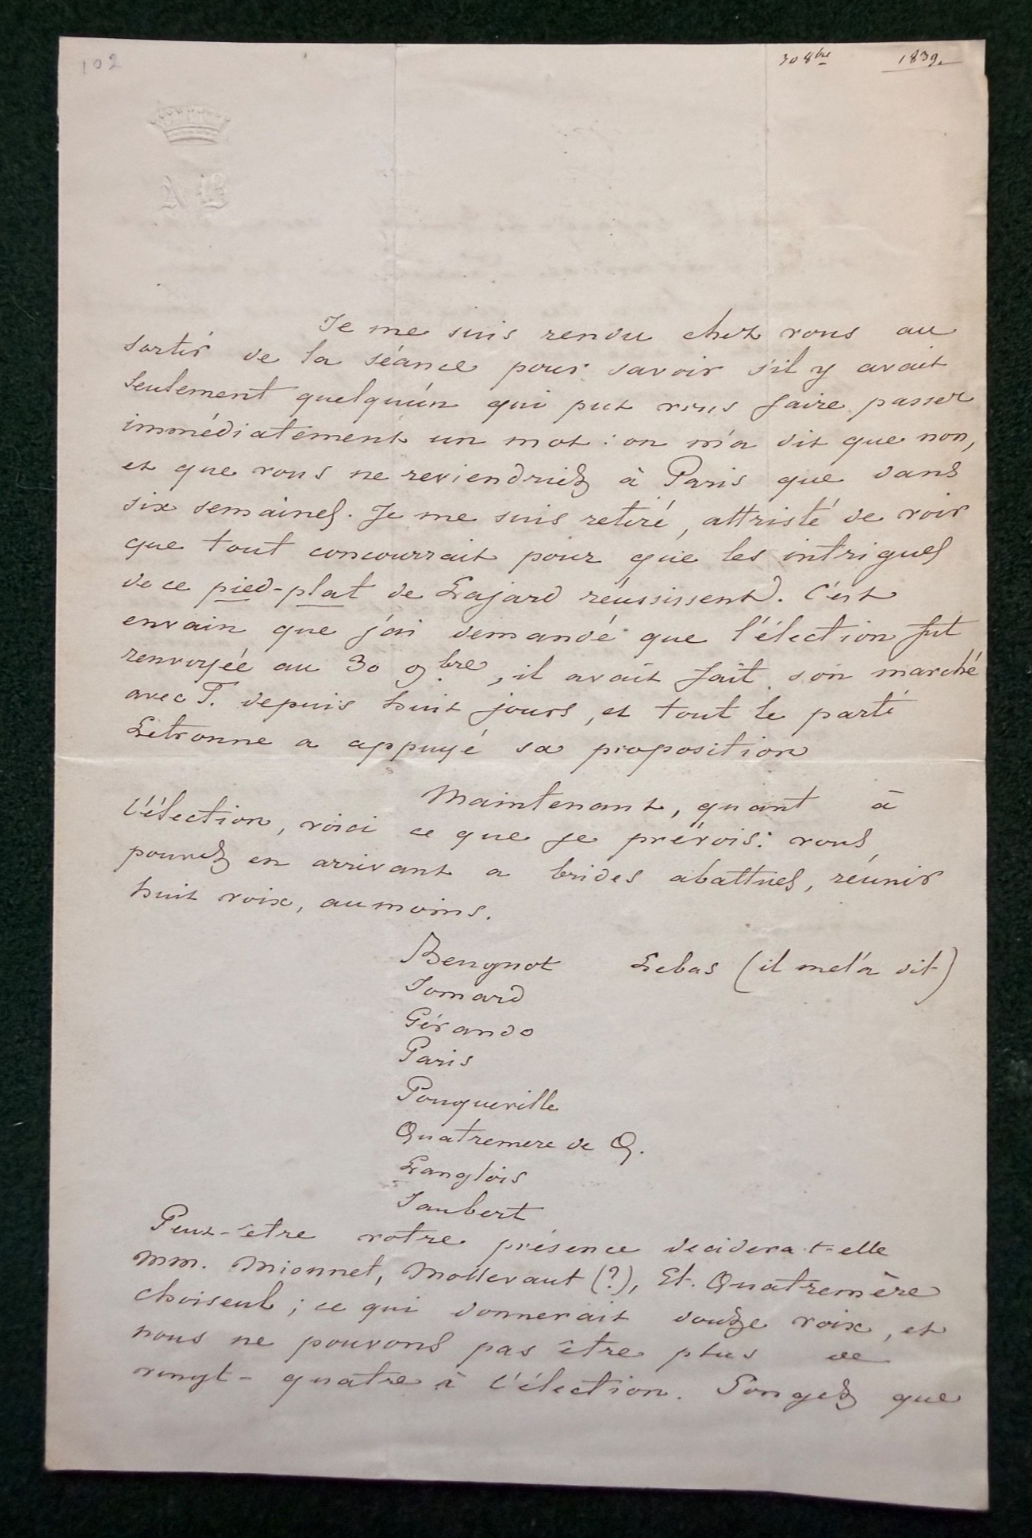 102
30 8bre 1839.
Je me suis rendu chez vous au
sortir de la séance pour savoir s'il y avait
seulement quelqu'un qui put vous faire passer
immédiatement un mot : on m'a dit que non,
et que vous ne reviendriez à Paris que dans
six semaines. Je me suis retiré, attristé de voir
que tout concourrait pour que les intrigues
de ce pied-plat de Lajard réussissent. C'est
envain que j'ai demandé que l'élection fut
renvoyée au 30 9bre, il avait fait son marché
avec T. depuis huit jours, et tout le parti
Letronne a appuyé sa proposition
Maintenant, quant à
l'élection, voici ce que je prévois : vous
pouvez en arrivant a brides abattues, réunir
huit voix, au moins.
Beugnot Lebas (il me l'a dit)
Jomard
Gérando
Paris
Pouqueville
Quatremere de Q.
Langlois
Jaubert
Peut-être votre présence decidera-t-elle
MM. Mionnet, Mollevaut (?), Et. Quatremère
choiseul ; ce qui donnerait douze voix, et
nous ne pouvons pas être plus de
vingt-quatre à l'élection. Songez que